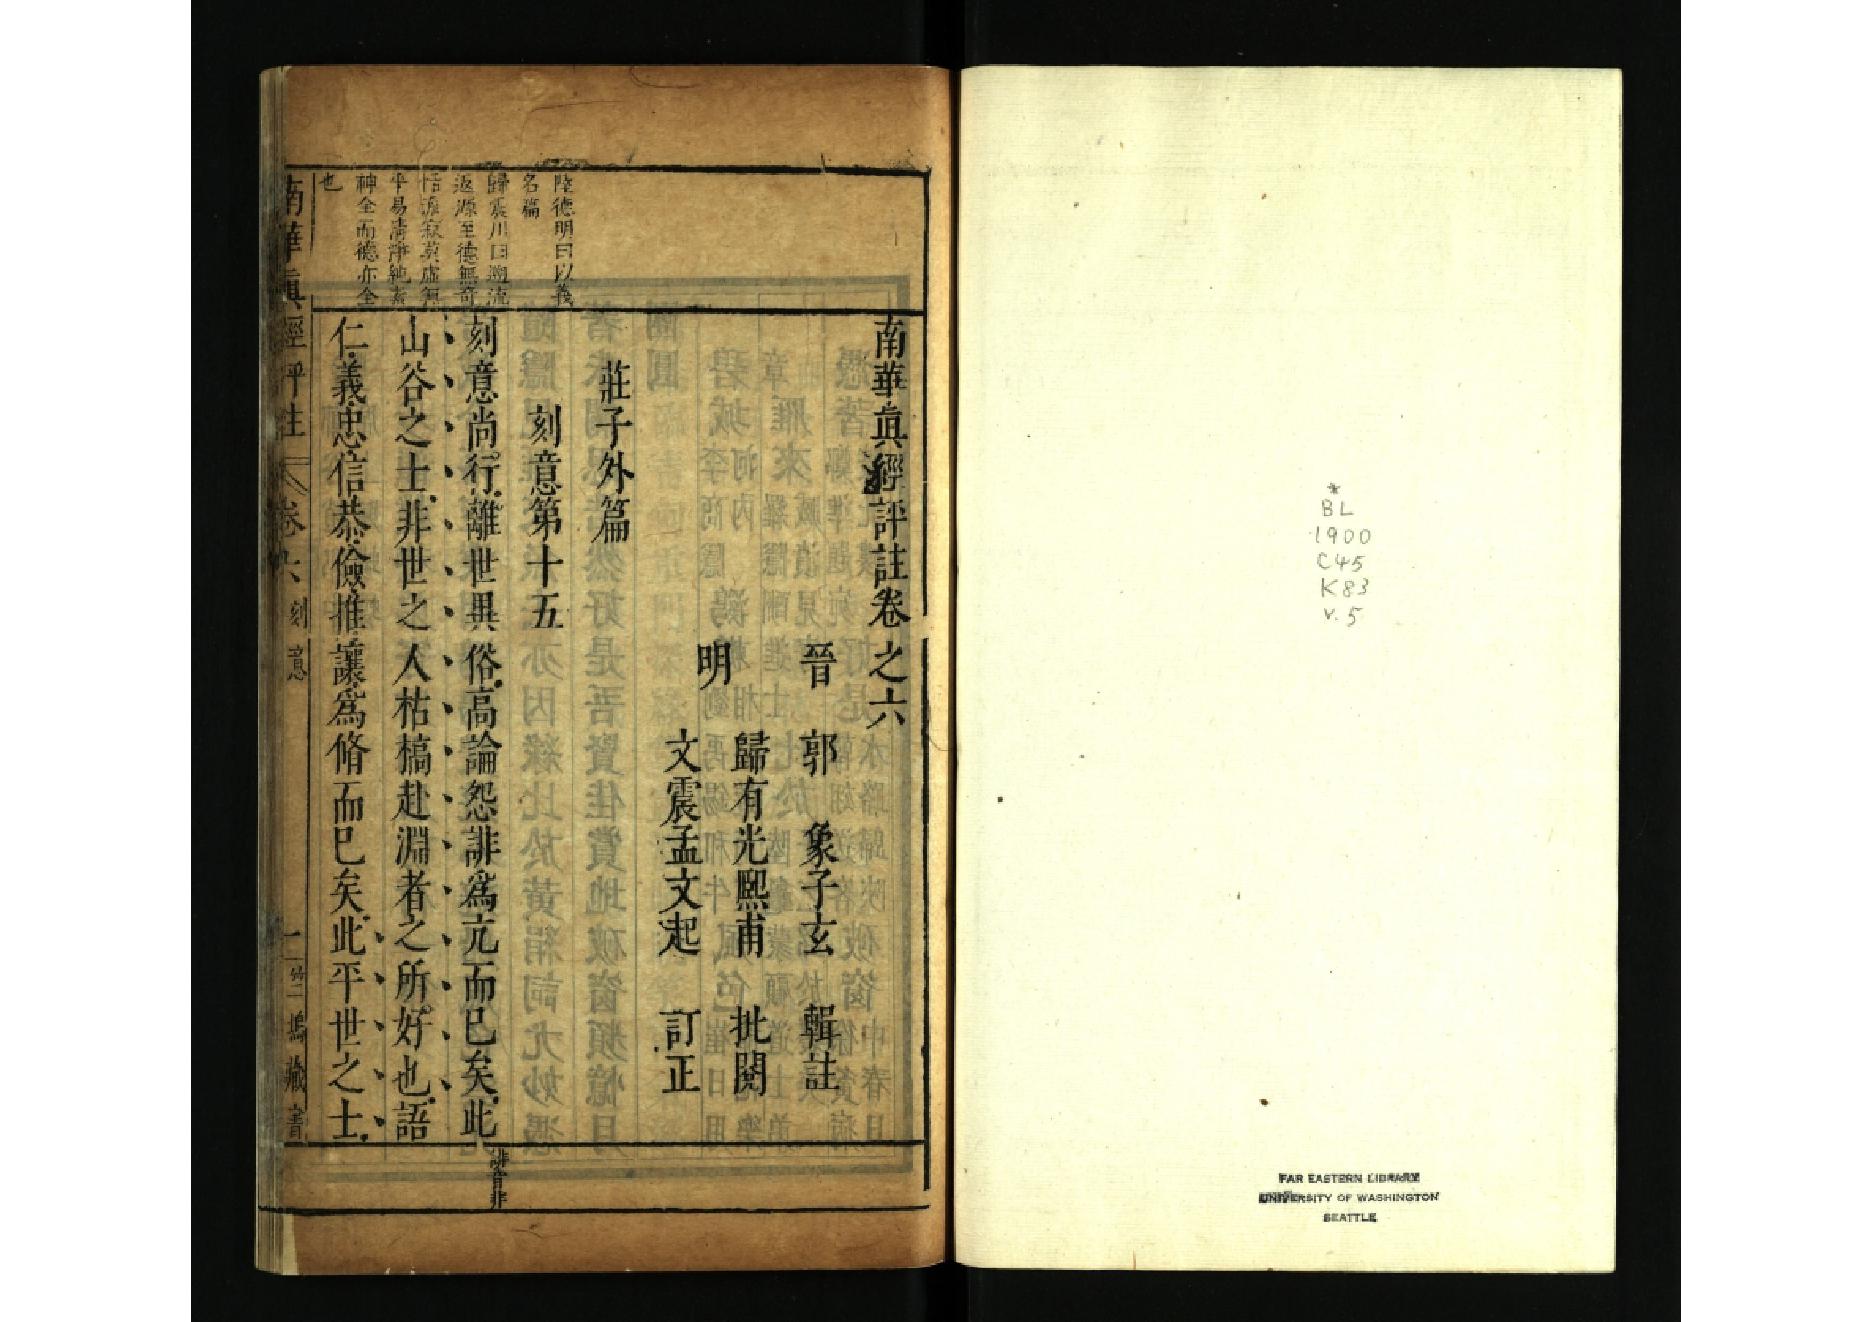 *
BL
1900
C45
K83
v.5
FAR EASTERN LIBRARY
UNIVERSITY OF WASHINGTON
SEATTLE
陸德明曰以義
名篇
歸震川曰遡流
返源至德無奇
恬淡寂莫虛無
平易清淨純素
神全而德亦全
也
南華真經評註卷之六
晉 郭 象子玄 輯註
明 歸有光熙甫 批閱
文震孟文起 訂正
莊子外篇
刻意第十五
刻意尚行離世異俗高論怨誹為亢而已矣此
山谷之士非世之人枯槁赴淵者之所好也語
仁義忠信恭儉推讓為脩而已矣此平世之士
誹音非
南華真經評註 卷六 刻意 一 竺塢藏書